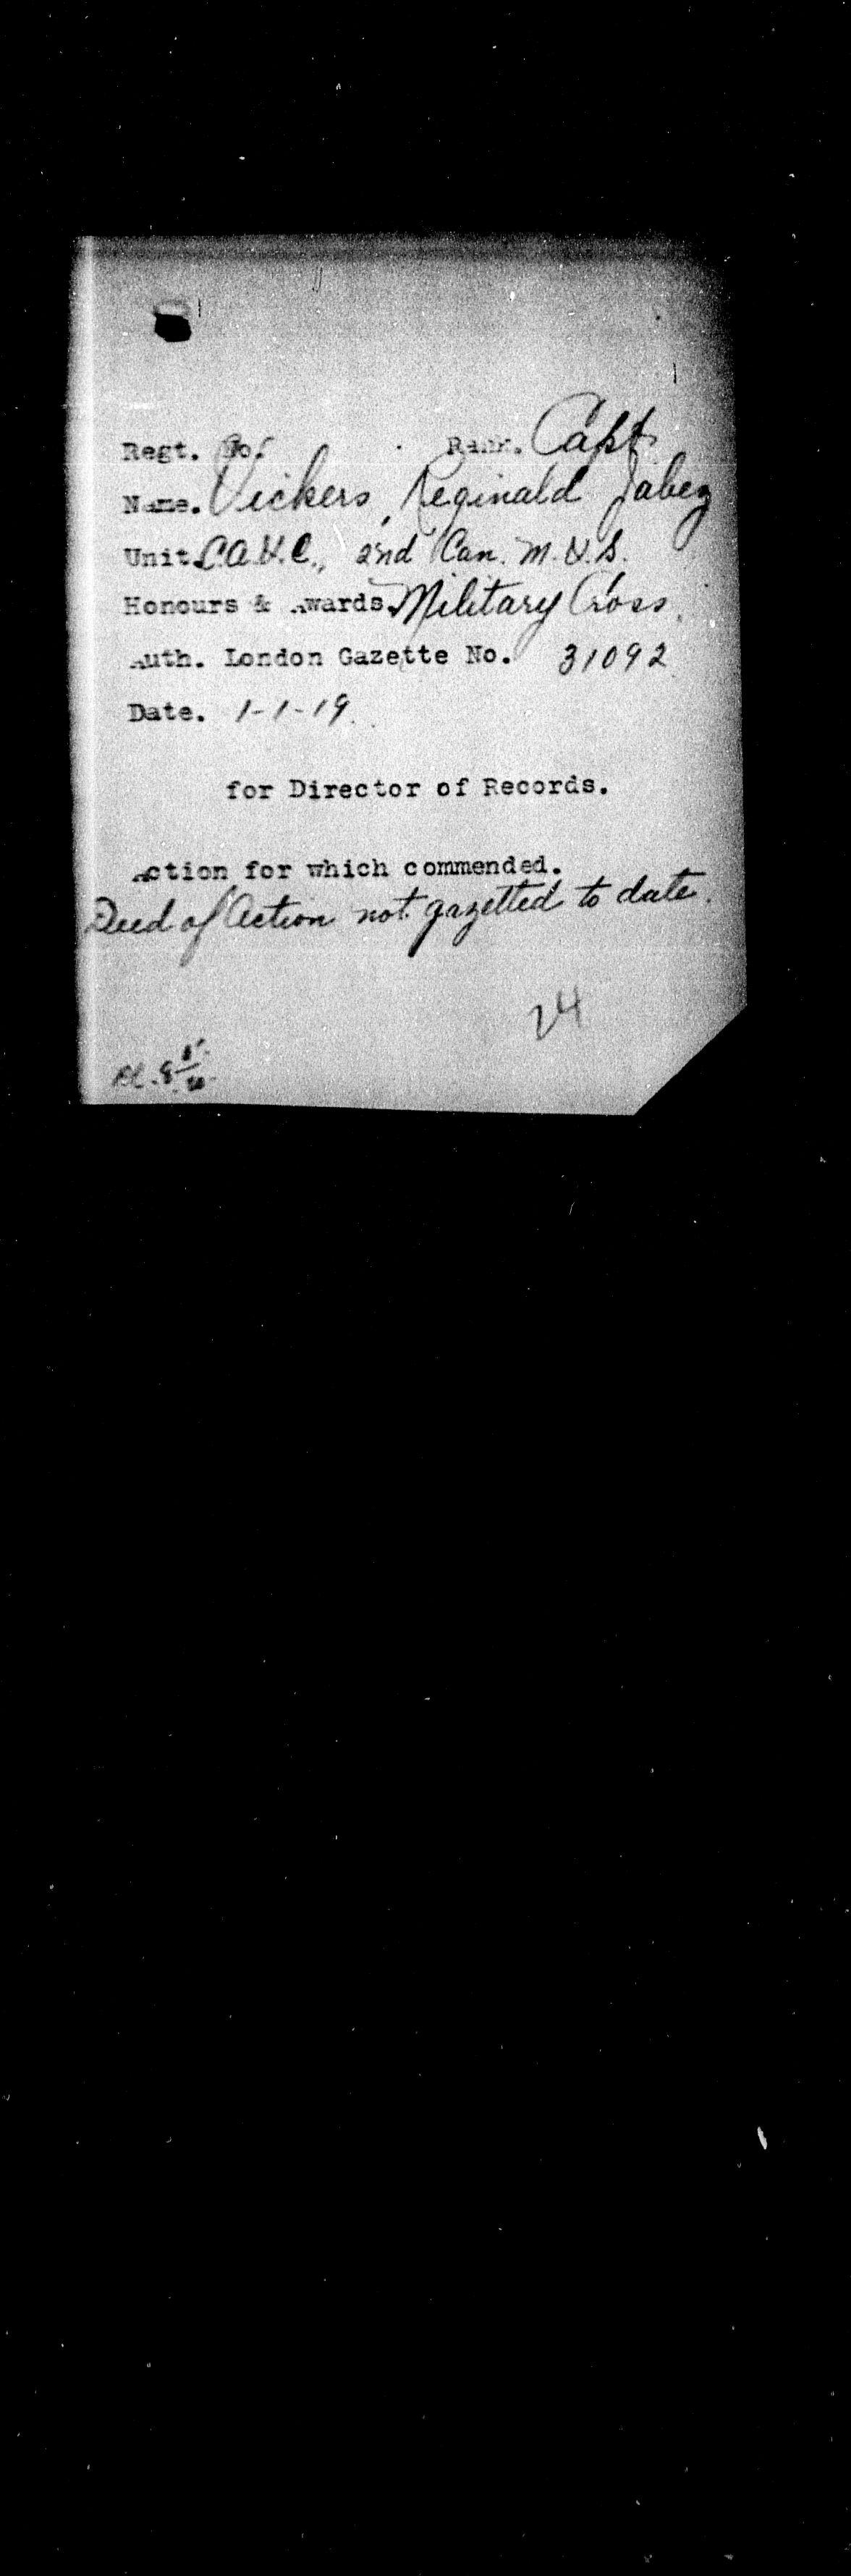 Regt. No. Rank. Capt.
Name. Vickers, Reginald Jabez
Unit. C.A.V.C., 2nd Can. M.V.S.
Honours & Awards. Military Cross.
Auth. London Gazette No. 31092
Date. 1-1-19.
for Director of Records.
Action for which commended.
Deed of Action not gazetted to date.
24